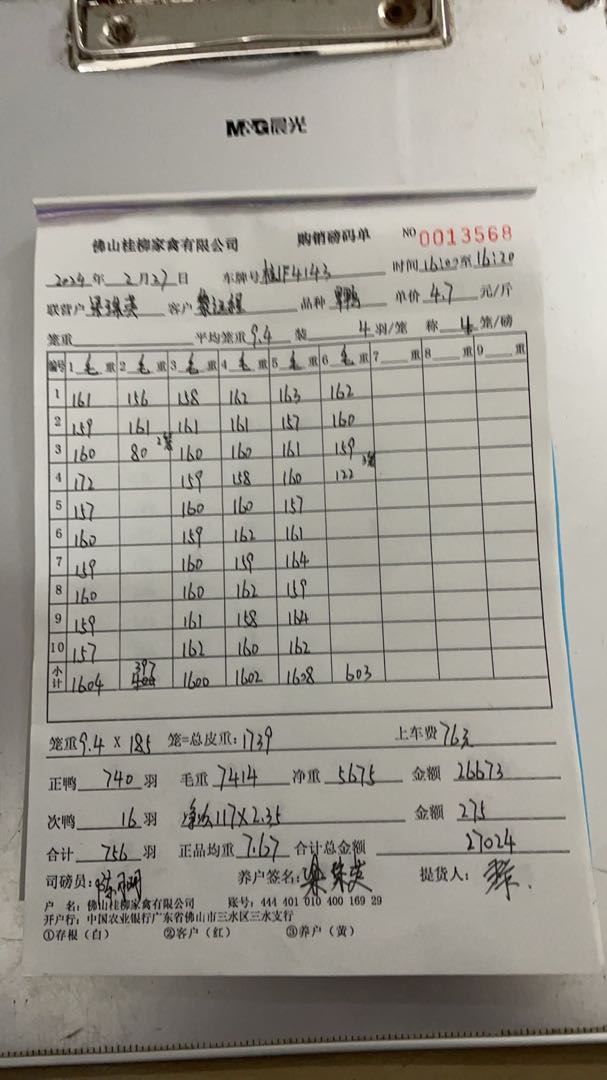 M&G晨光
佛山桂柳家禽有限公司 购销磅码单 NO 0013568
2024年 2月27日 车牌号 桂1F4143 时间 16:00至16:20
联营户 客户 品种 单价 4.7 元/斤
笼重 平均笼重 9.4 装 4 羽/笼 称 4 笼/磅
编号 1 毛 重 2 毛 重 3 毛 重 4 毛 重 5 毛 重 6 毛 重 7 重 8 重 9 重
1 161 156 158 162 163 162
2 159 161 161 161 157 160
3 160 80 2笼 160 160 161 159
4 172 159 158 160 122 3笼
5 157 160 160 157
6 160 159 162 161
7 159 160 159 164
8 160 160 162 159
9 159 161 158 164
10 157 162 160 162
小计 1604 397 1600 1602 1608 603
笼重 9.4 X 185 笼=总皮重: 1739 上车费 76元
正鸭 740 羽 毛重 7414 净重 5675 金额 26673
次鸭 16 羽 117X2.35 金额 275
合计 756 羽 正品均重 7.67 合计总金额 27024
司磅员: 养户签名: 提货人:
户 名: 佛山桂柳家禽有限公司 账号: 444 401 010 400 169 29
开户行: 中国农业银行广东省佛山市三水区三水支行
①存根（白） ②客户（红） ③养户（黄）